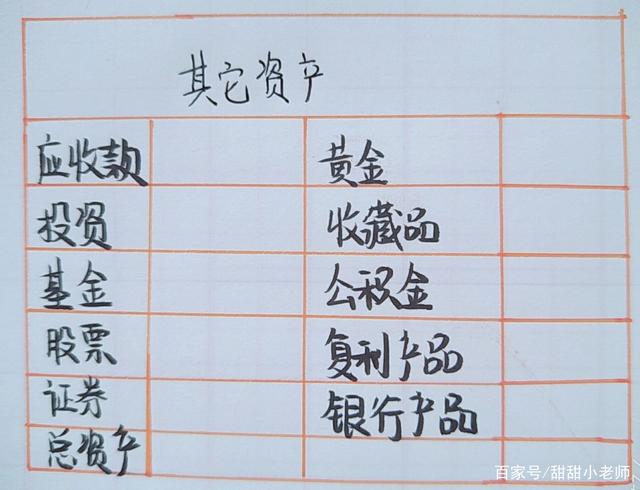 其它资产
应收款 黄金
投资 收藏品
基金 公积金
股票 复利产品
证券 银行产品
总资产
百家号/甜甜小老师